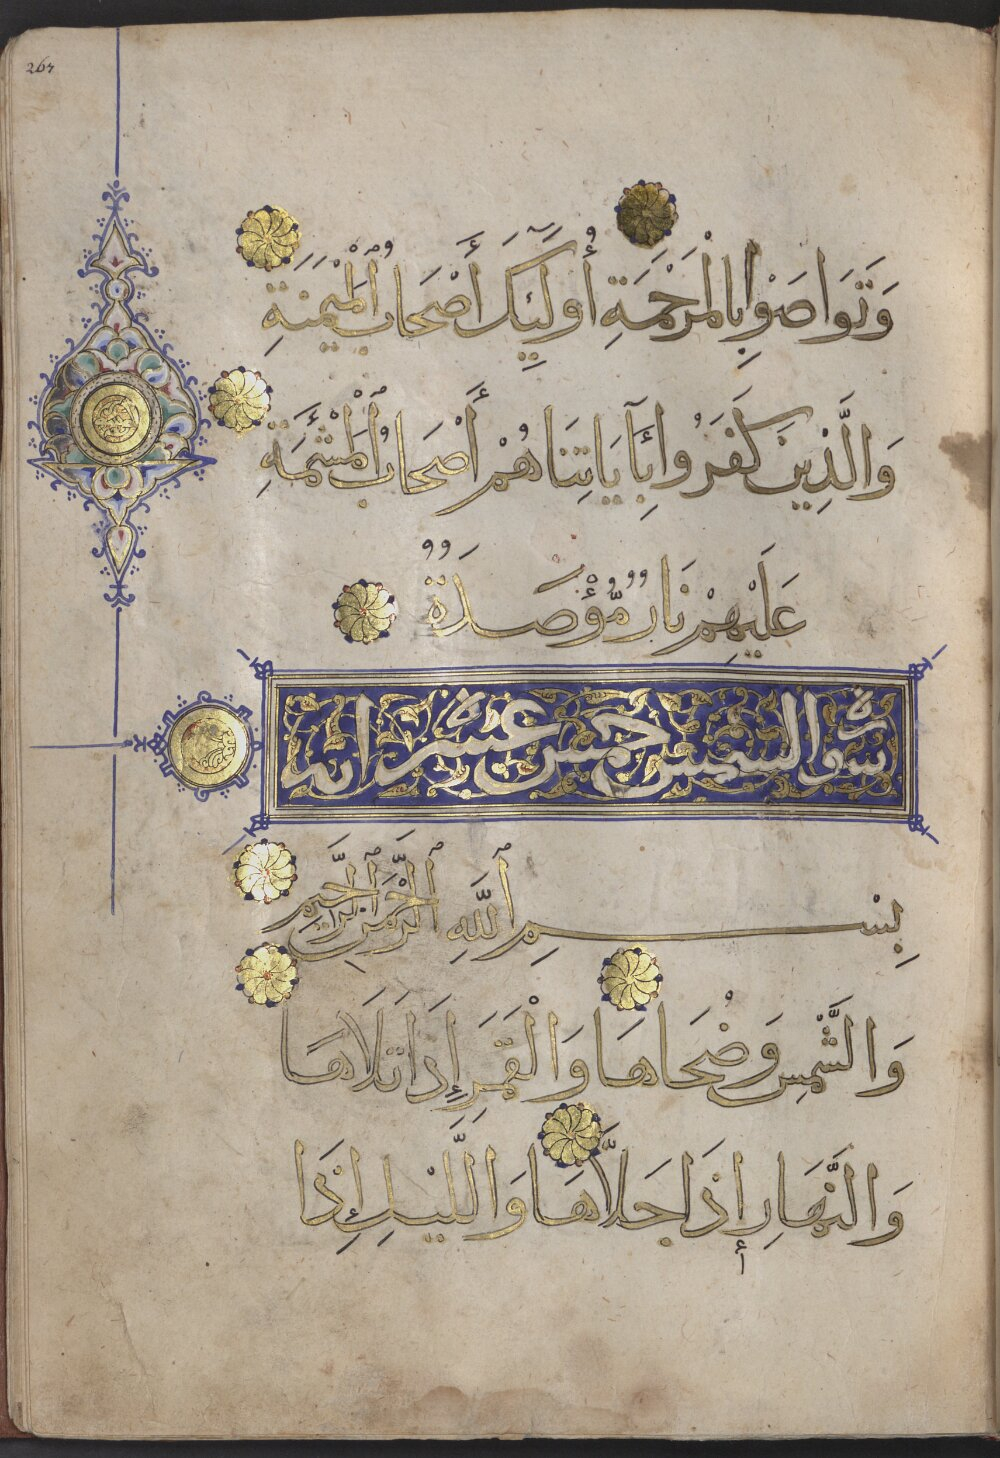 267
وَتَوَاصَوْا بِالْمَرْحَمَةِ أُولَٰئِكَ أَصْحَابُ الْمَيْمَنَةِ
وَالَّذِينَ كَفَرُوا بِآيَاتِنَا هُمْ أَصْحَابُ الْمَشْئَمَةِ
عَلَيْهِمْ نَارٌ مُّؤْصَدَةٌ
سورة والشمس خمس عشرة آية
بِسْمِ اللَّهِ الرَّحْمَٰنِ الرَّحِيمِ
وَالشَّمْسِ وَضُحَاهَا وَالْقَمَرِ إِذَا تَلَاهَا
وَالنَّهَارِ إِذَا جَلَّاهَا وَاللَّيْلِ إِذَا